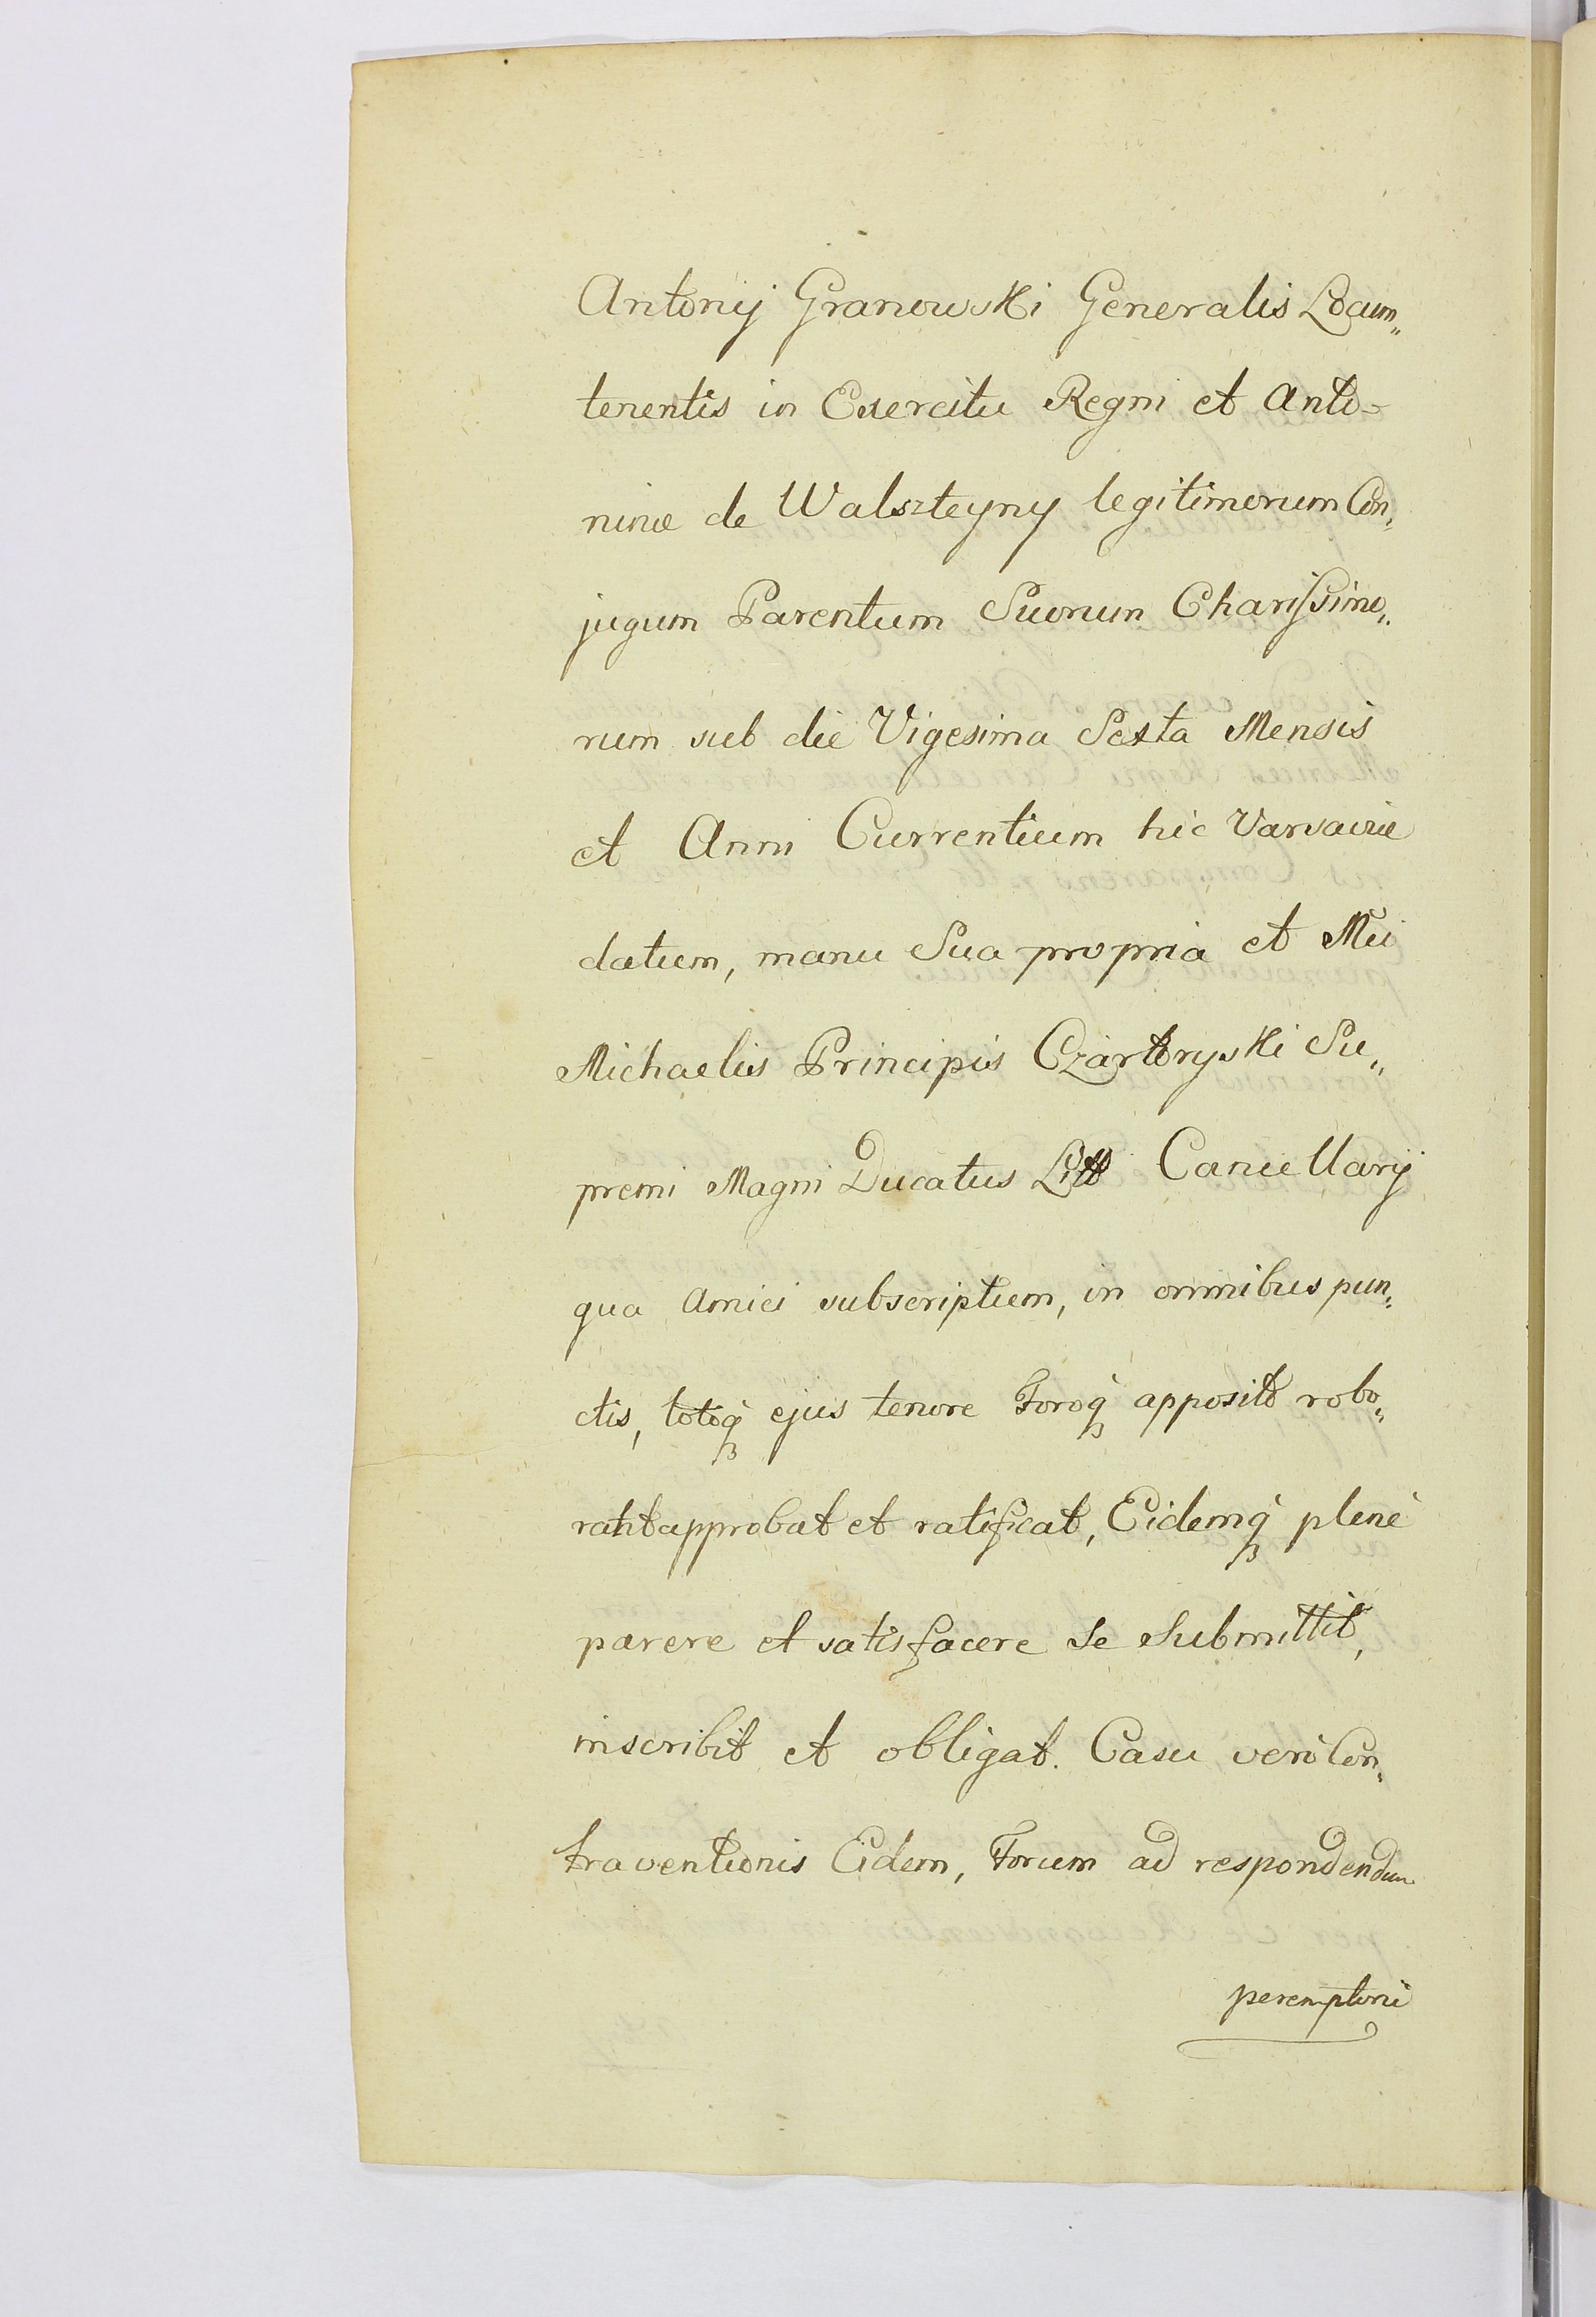 Antonij Granowski Generalis Locum„
tenentis in Exercitu Regni et Anto=
ninæ de Walszteyny legitimorum Con„
jugum Parentum Suorum Charissimo„
rum sub die Vigesima Sexta Mensis
et Anni Currentium hic Varsaviæ
datum, manu Sua propria et Mei
Michaelis Principis Czartoryski Su„
premi Magni Ducatus Litt Cancellarij
qua Amici subscriptum, in omnibus pun„
ctis, totoq́ꝫ ejus tenore Foroq́ꝫ apposito robo„
rat approbat et ratificat, Eidemq́ꝫ plenè
parere et satisfacere se submittit,
inscribit et obligat. Casu verò Con„
traventionis Eidem, Forum ad respondendum
peremptoriè